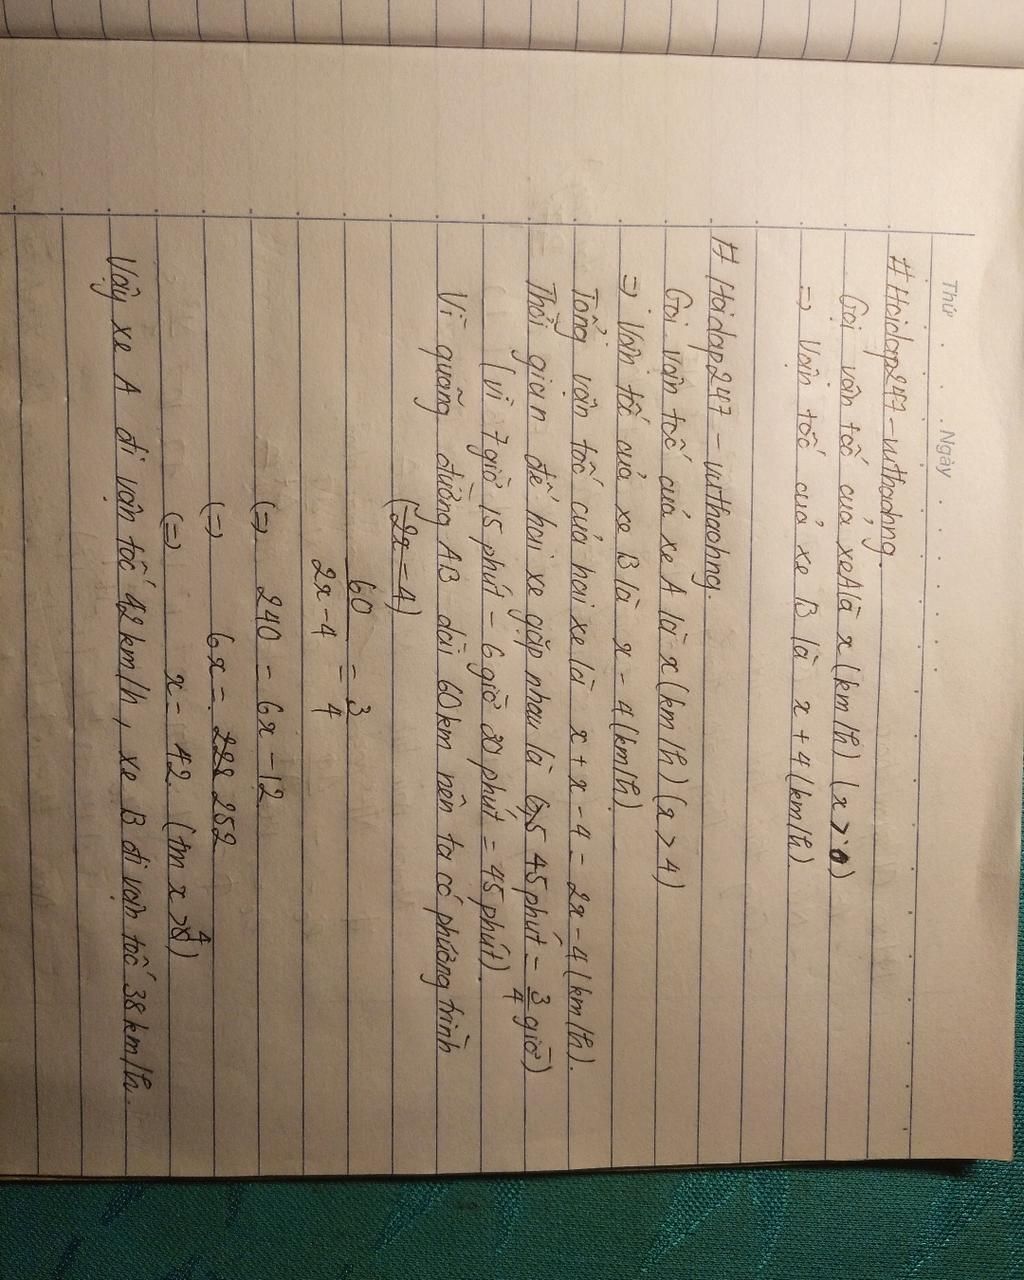 Thứ . . . . . Ngày . . . . . . . . . . . .
# Hoidap247 - vuthaohng.
Gọi vận tốc của xe A là x (km/h) (x > 0)
=> Vận tốc của xe B là x + 4 (km/h)
# Hoidap247 - vuthaohng.
Gọi vận tốc của xe A là x (km/h) (x > 4)
=> Vận tốc của xe B là x - 4 (km/h)
Tổng vận tốc của hai xe là x + x - 4 = 2x - 4 (km/h).
Thời gian để hai xe gặp nhau là 45 phút = 3/4 giờ)
(vì 7 giờ 15 phút - 6 giờ 30 phút = 45 phút).
Vì quãng đường AB dài 60 km nên ta có phương trình
(2x - 4)
60/2x - 4 = 3/4
(=) 240 = 6x - 12
(=) 6x = 228 252
(=) x = 42 (tm x > 4)
Vậy xe A đi vận tốc 42 km/h, xe B đi vận tốc 38 km/h.